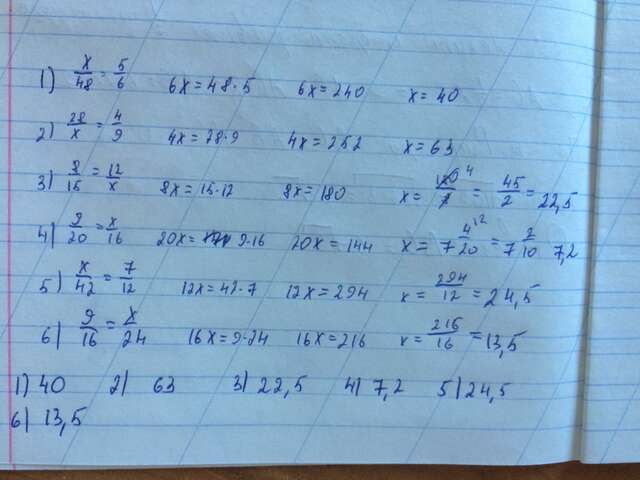 1) x/48 = 5/6 6x = 48 · 5 6x = 240 x = 40
2) 28/x = 4/9 4x = 28 · 9 4x = 252 x = 63
3) 8/15 = 12/x 8x = 15 · 12 8x = 180 x = = 45/2 = 22,5
4) 9/20 = x/16 20x = 9 · 16 20x = 144 x = 7 4/20 = 7 2/10 7,2
5) x/42 = 7/12 12x = 42 · 7 12x = 294 x = 294/12 = 24,5
6) 9/16 = x/24 16x = 9 · 24 16x = 216 x = 216/16 = 13,5
1) 40 2) 63 3) 22,5 4) 7,2 5) 24,5
6) 13,5